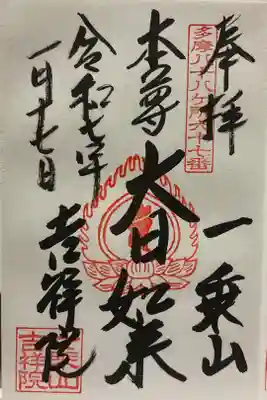 奉拝
多摩八十八ヶ所六十七番
一乗山
本尊
大日如来
令和七年
一月十七日
吉祥院
一乗山
吉祥院